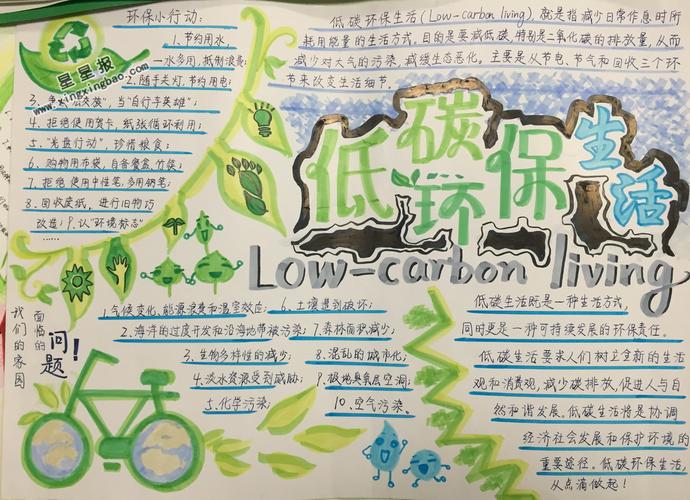 环保小行动：
1.节约用水，
一水多用，抵制浪费；
2.随手关灯，节约用电；
3.争
族"，当"自行手英雄"；
4.拒绝使用贺卡，纸张循环利用；
5."光盘行动"，珍惜粮食；
6.购物用布袋，自备餐盒、竹筷；
7.拒绝使用中性笔，多用钢笔；
8.回收废纸，进行旧物巧
改造；9.认"环境标志"
……
星星报
www.xingxingbao.com
低碳环保生活(Low-carbon living)，就是指减少日常作息时所
耗用能量的生活方式，目的是要减低碳，特别是二氧化碳的排放量，从而
减少对大气的污染，减缓生态恶化。主要是从节电、节气和回收三个环
节来改变生活细节。
低碳环保生活
Low-carbon living
我们的家园
面临的
问题！
1.气候变化、能源浪费和温室效应；
2.海洋的过度开发和沿海地带被污染；
3.生物多样性的减少；
4.淡水资源受到威胁；
5.化学污染；
6.土壤遭到破坏；
7.森林面积减少；
8.混乱的城市化；
9.极地臭氧层空洞；
10.空气污染。
低碳生活既是一种生活方式，
同时更是一种可持续发展的环保责任。
低碳生活要求人们树立全新的生活
观和消费观，减少碳排放，促进人与自
然和谐发展。低碳生活将是协调
经济社会发展和保护环境的
重要途径。低碳环保生活，
从点滴做起！